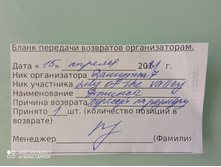 Бланк передачи возвратов организаторам.
Дата «15» апреля 2021 г.
Ник организатора
Ник участника Lily of the valley
Наименование
Причина возврата не подошёл по размеру
Принято 1 шт. (количество позиций в
возврате)
Менеджер (Фамилия)